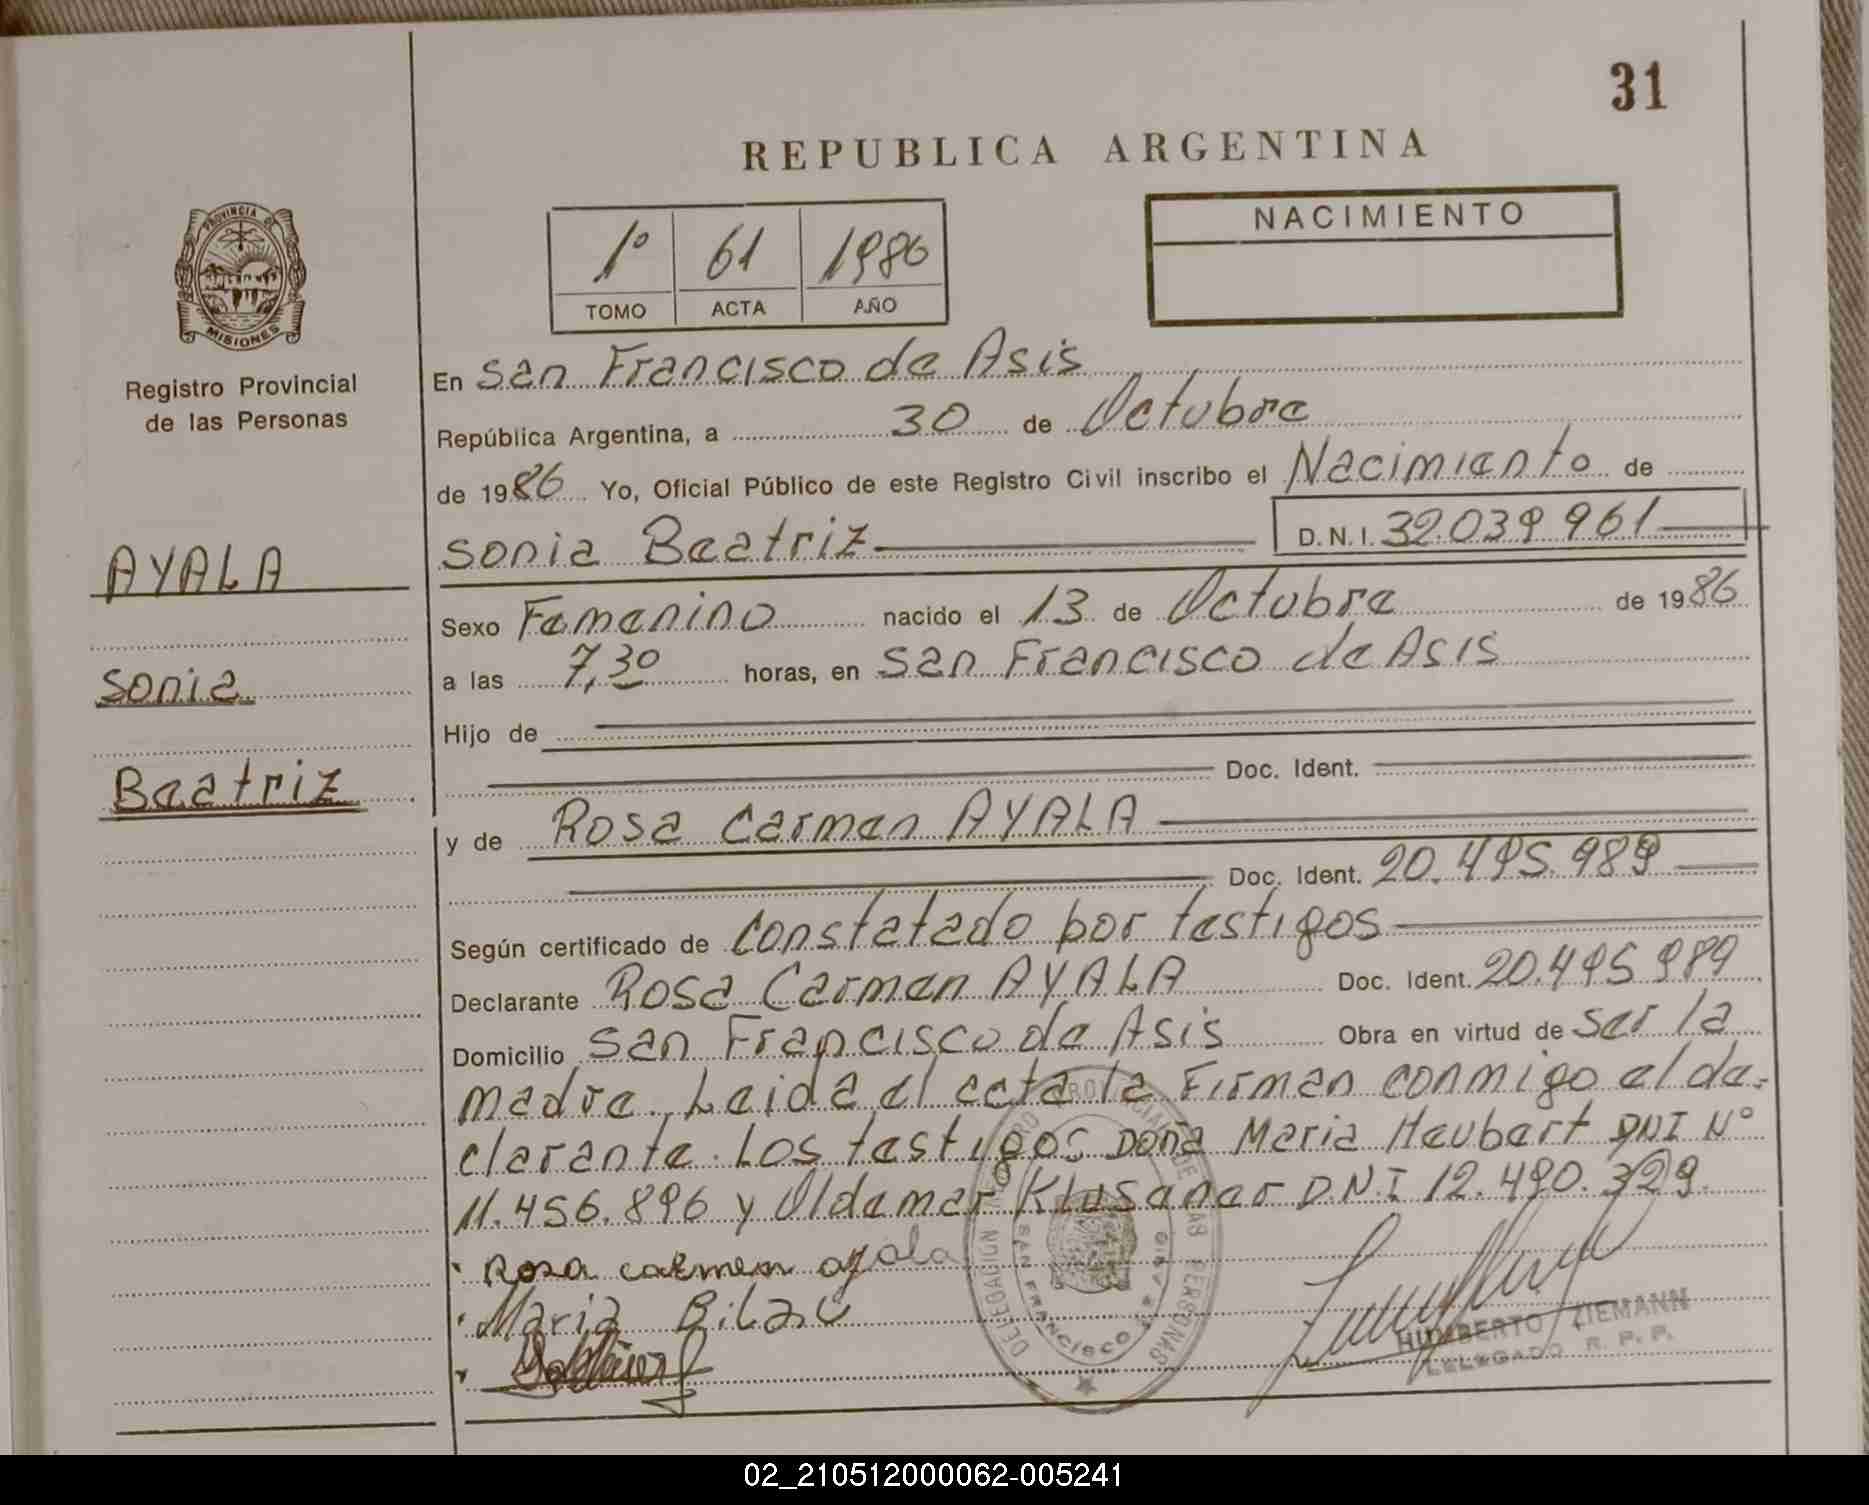 31
REPUBLICA ARGENTINA
PROVINCIA DE
MISIONES
Registro Provincial
de las Personas
1º 61 1986
TOMO ACTA AÑO
NACIMIENTO
En San Francisco de Asis
República Argentina, a 30 de Octubre
de 1986 Yo, Oficial Público de este Registro Civil inscribo el Nacimiento de
Sonia Beatriz D.N.I. 32.039.961
AYALA
Sonia
Beatriz
Sexo Femenino nacido el 13 de Octubre de 1986
a las 7,30 horas, en San Francisco de Asis
Hijo de
Doc. Ident.
y de Rosa Carmen AYALA
Doc. Ident. 20.495.989
Según certificado de Constatado por testigos
Declarante Rosa Carmen AYALA Doc. Ident. 20.495.989
Domicilio San Francisco de Asis Obra en virtud de Ser la
madre. Leida el acta la Firman conmigo el de=
clarante. Los testigos Doña Maria Heubert DNI Nº
11.456.896 y Oldemar Klusener D.N.I 12.490.329.
Rosa carmen ayala
Maria
HUMBERTO ZIEMANN
DELEGADO R. P. P.
DELEGACION REGISTRO PROVINCIAL DE LAS PERSONAS
SAN FRANCISCO DE ASIS
02_210512000062-005241